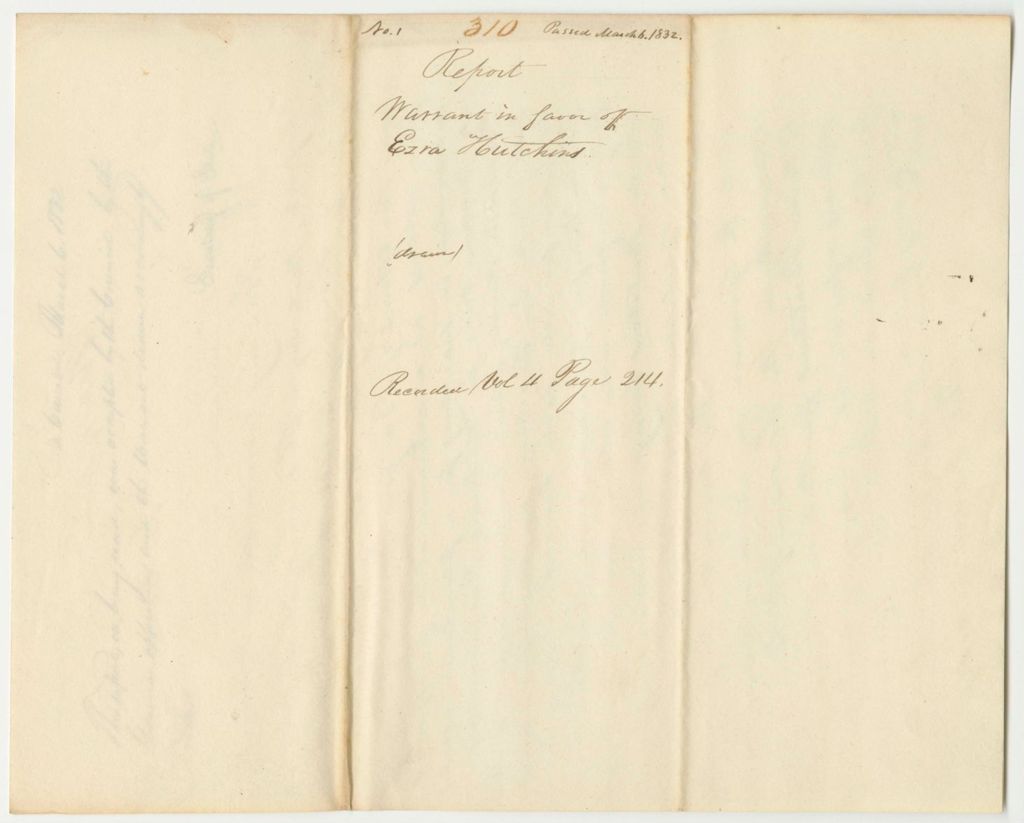 No. 1 310 Passed March 6. 1832.
Report
Warrant in favor of
Ezra Hutchins.
(drawn)
Recorded Vol 4 Page 214.